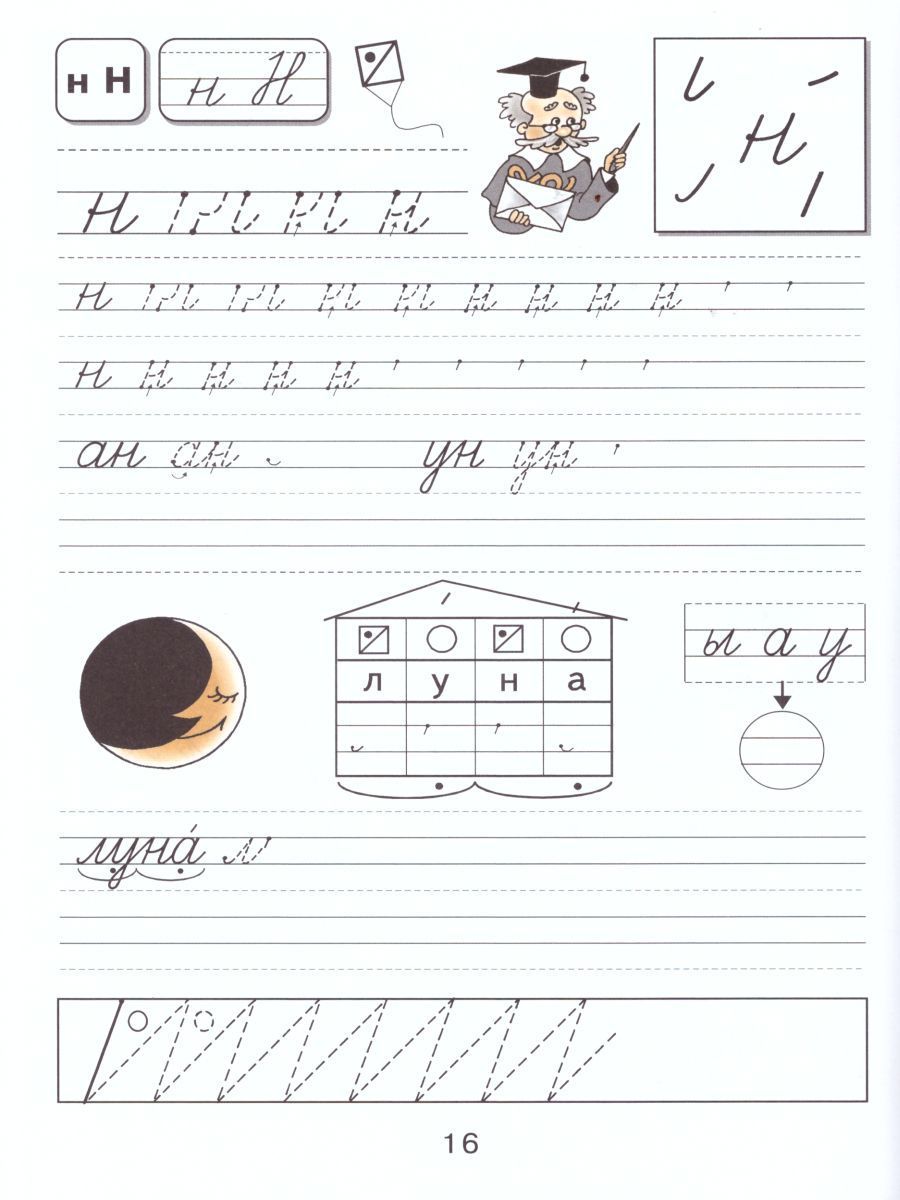 н Н н Н
н
н
н
н
ан ан ун ун
л у н а
ы а у
луна́ л
16